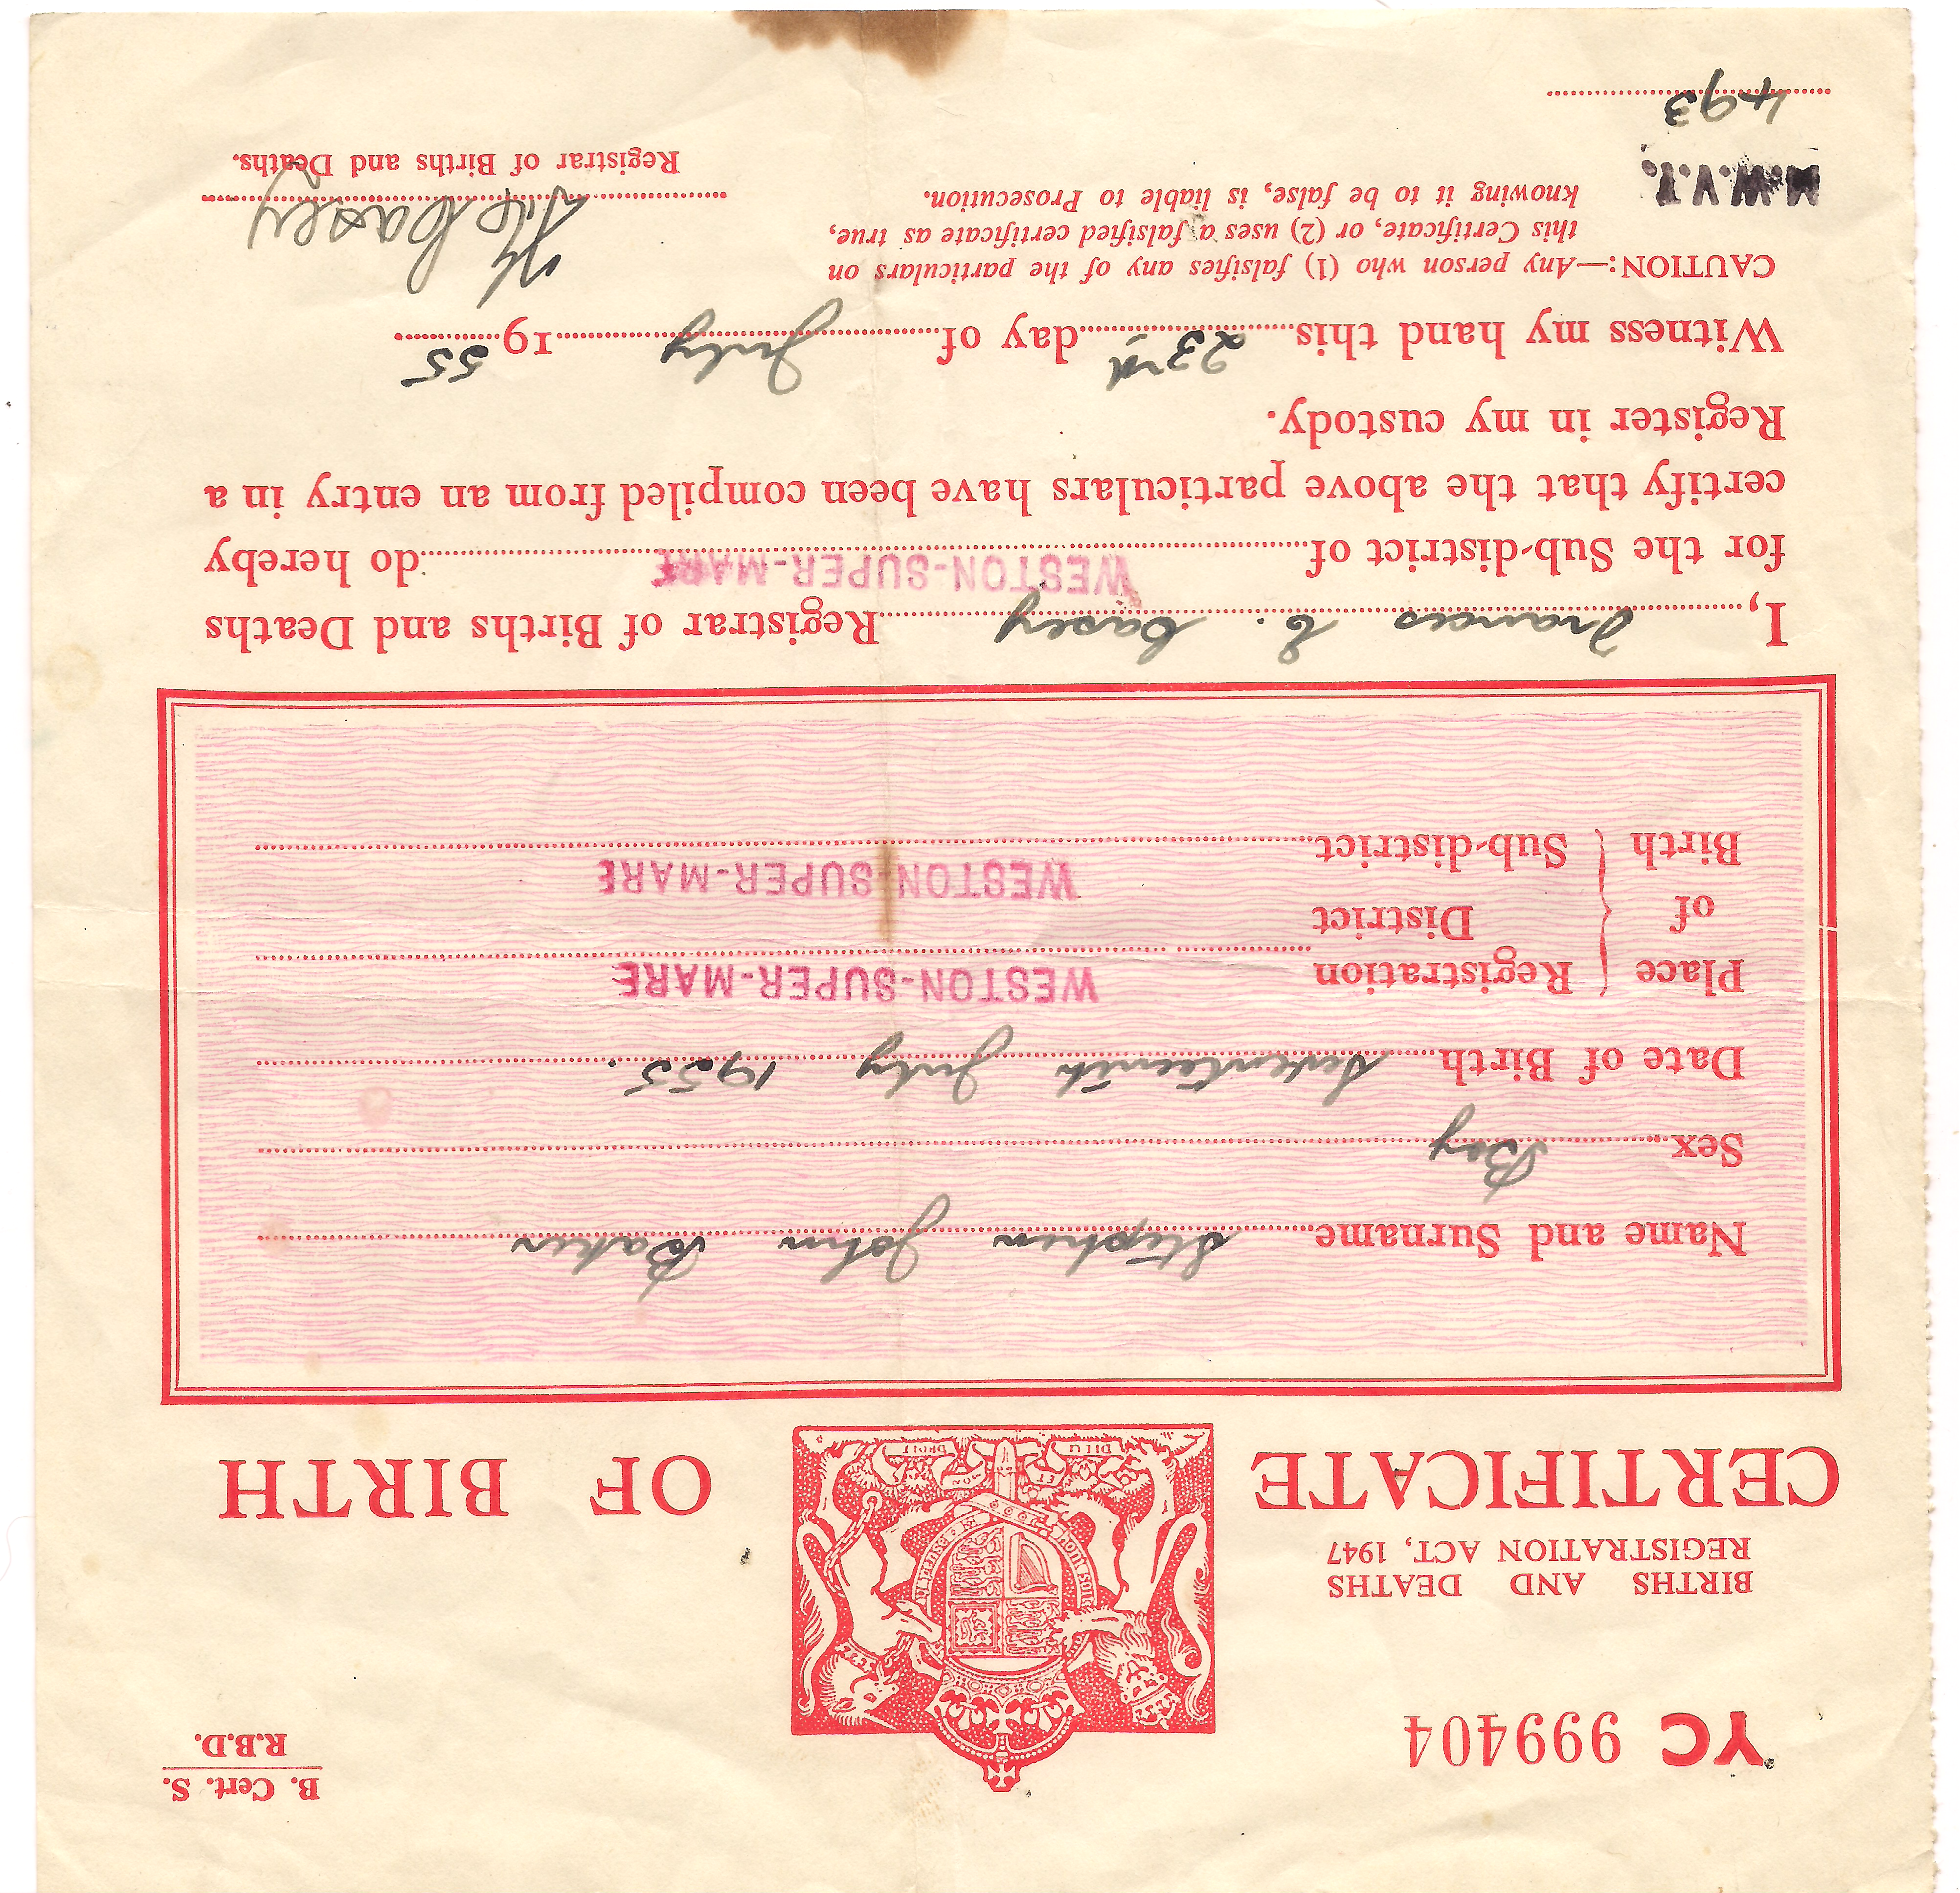 YC 999404
B. Cert. S.
R.B.D.
BIRTHS AND DEATHS
REGISTRATION ACT, 1947
HONI SOIT
DIEU ET MON DROIT
CERTIFICATE OF BIRTH
Name and Surname Stephen John Baker
Sex Boy
Date of Birth Seventeenth July 1955.
Place of Birth
Registration District WESTON-SUPER-MARE
Sub-district WESTON-SUPER-MARE
I, Frances E. Casey Registrar of Births and Deaths
for the Sub-district of WESTON-SUPER-MARE do hereby
certify that the above particulars have been compiled from an entry in a
Register in my custody.
Witness my hand this 23rd day of July 1955
CAUTION:—Any person who (1) falsifies any of the particulars on
this Certificate, or (2) uses a falsified certificate as true,
knowing it to be false, is liable to Prosecution.
Casey
Registrar of Births and Deaths.
M.W.V.T.
493